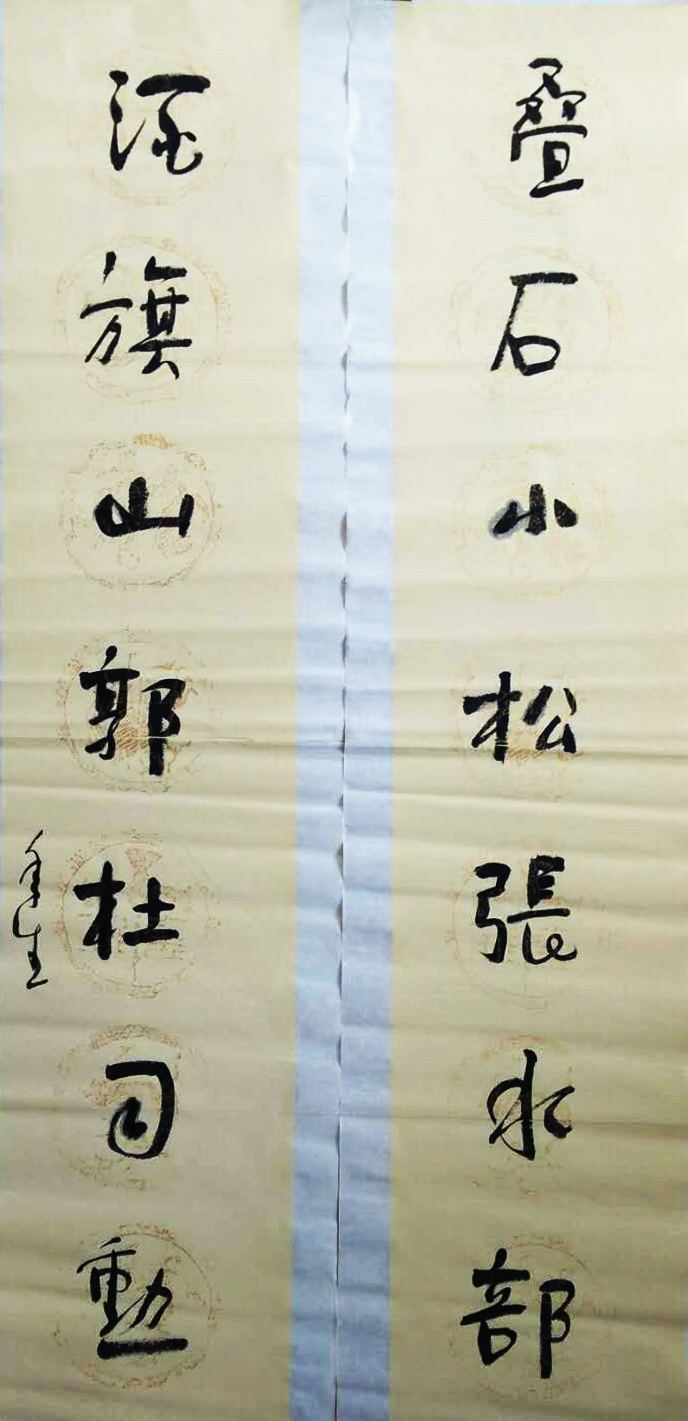 疊石小松張水部
酒旗山郭杜司勳
年生